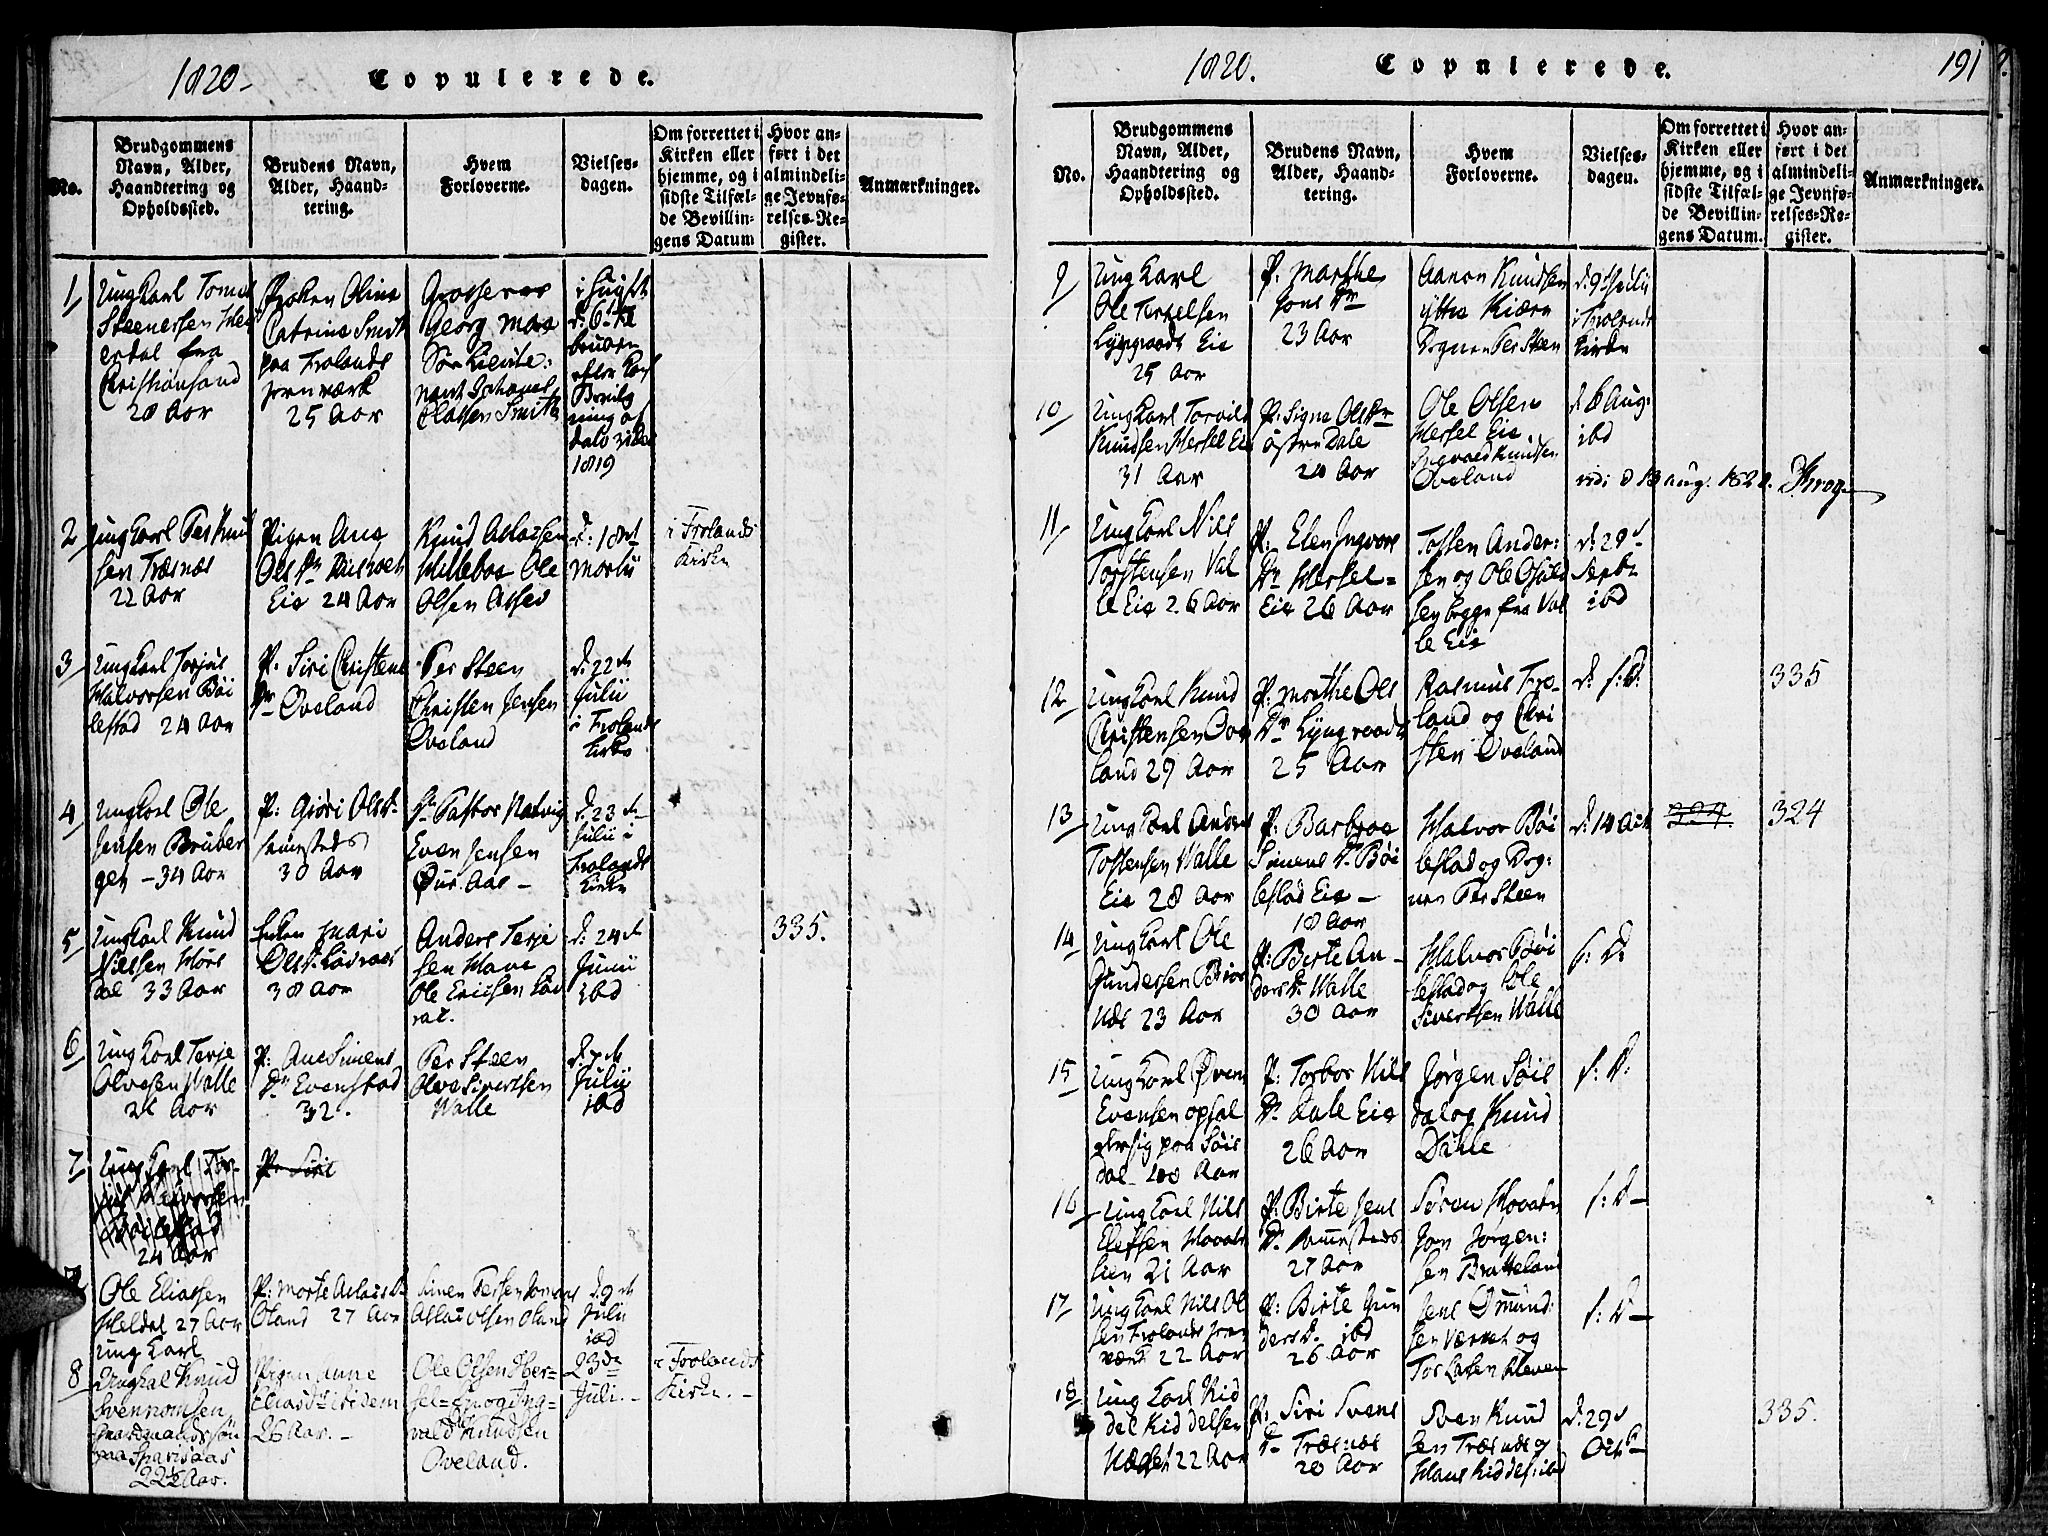 1820.
Copulerede.
No.
Brudgommens
Navn, Alder,
Haandtering og
Opholdssted.
Brudens Navn,
Alder, Haand-
tering.
Hvem
Forloverne.
Vielses-
dagen.
Om forrettet i
Kirken eller
hjemme, og i
sidste Tilfæl-
de Bevillin-
gens Datum
Hvor an-
ført i det
almindeli-
ge Jevnfø-
relses-Re-
gister.
Anmærkninger.
1
Ungkarl Tomas
Steenersen
fra
Christiansand
28 Aar
Frøken Oline
Catrine Smith
paa Frolands
jernværk
25 Aar
Grosserer
Georg Moe
Johannes
Clasen Smith
1819
2
Ungkarl Per Knud
sen Træsnæs
22 Aar
Pigen Ane
Ols Dr
Eie 24 Aar
Knud Aslassen
Hillebae Ole
Olsen Assev
d: 18de
Martii
i Frolands
Kirke
3
Ungkarl Torjus
Halvorsen Bøi
lestad 24 Aar
P: Siri Christens
Dr Øveland
Per Steen
Christen Jensen
Øveland
d: 22de
Julii
i Frolands
Kirke
4
Ungkarl Ole
Jensen Bruber
gen - 34 Aar
P: Gjøri Ols D.
sammesteds
30 Aar
Hr Pastor Natvig
Even Jensen
d: 23de
Julii i
Frolands
Kirke
5
Ungkarl Knud
Nilssen
dal 33 Aar
Enken Mari
Ols D. Løvraas
38 Aar
Anders Terje
sen Have
Ole Ericsen Løv
raa.
d: 24de
Junii
ibd
335.
6
Ungkarl Terje
Olvesen Walle
Aar
P: Ane Simens
Dr Evenstad
32.
Per Steen
Olve Sivertsen
Walle
d: 7de
Julii
ibd
7
24 Aar
P: Siri
Ole Eliassen
Heldal 27 Aar
Ungkarl
P: Marte Aslaks D.
Oland 27 Aar
Aslac Olsen Oland
d. 9de
Julii
ibd
8
Ungkal Knud
Svennomsen
paa Sparisaas
22½ Aar.
Pigen Anne
Eliasd: ibidem
26 Aar. -
Ole Olsen Her-
sel-Eie og Ing-
vald Knudsen
Øveland.
23de
Juli. -
i Frolands
Kirke. -
1820.
Copulerede.
191
No.
Brudgommens
Navn, Alder,
Haandtering og
Opholdssted.
Brudens Navn,
Alder, Haand-
tering.
Hvem
Forloverne.
Vielses-
dagen.
Om forrettet i
Kirken eller
hjemme, og i
sidste Tilfæl-
de Bevillin-
gens Datum.
Hvor an-
ført i det
almindeli-
ge Jevnfø-
relses-Re-
gister.
Anmærkninger.
9
Ungkarl
Ole Terkelsen
Lyngraads Eie
25 Aar
P: Marthe
Jons Dr
23 Aar
Aanon Knudsen
yttre Kiærn
Dognen Per Steen
d: 9de Julii
i Frolands
Kirke
10
Ungkarl Torvild
Knudsen Hersel Eie
31 Aar
P: Signe Ols Dr
østre Dale
24 Aar
Ole Olsen
Hersel Eie
Ingvald Knudsen
Øveland
d. 6 Aug:
ibd
vidi d 13 aug. 1820. Krog
11
Ungkarl Nils
Torstensen Val
le Eie 26 Aar
P: Elen Ingvors
Dr Hersel-
Eie 26 Aar
Tossen Ander:
sen og Ole Osuls
sen begge fra Val
le Eie
d: 29d
Septbr
ibd
12
Ungkarl Knud
Christensen Ove
land 29 Aar
P: Marthe Ols
Dr Lyngraads
25 Aar
Rasmus Fro-
land og Chri
sten Øveland
d. s: D:
335
13
Ungkarl Anders
Tossensen Walle
Eie 28 Aar
P: Barbroe
Simens Dr Bøi
lestad Eie -
18 Aar
Halvor Bøi
lestad og Dog:
nen Per Steen
d: 14 Oct
324
14
Ungkarl Ole
Gundersen
23 Aar
P: Birte An-
ders Dr Walle
30 Aar
Halvor Bøi
lestad og Ole
Sivertsen Walle
s: D:
15
Ungkarl Øven
Evensen ophol
der sig paa Søis
dal 28 Aar
P: Torbor Nils
Dr Dale Eie
26 Aar
Jørgen Søis
dal og Knud
Dahle
s: D:
16
Ungkarl Nils
Elefsen Hovats
lien 21 Aar
P: Birte Jens
Dr sammesteds
27 Aar
Søren Hovatn
Jon Jørgen:
sen Bratteland
s: D-
17
Ungkarl Nils Ol
sen Frolands Jern
værk 22 Aar
P: Birte Gun
ders D. ibd
26 Aar
Jens Osmund:
sen Værket og
Tor Larsen Kleven
s: D-
18
Ungkarl Kid
del Kiddelsen
22 Aar
P: Siri Svens
Dr Træsnæs
20 Aar
Sven Knud
sen Træsnæs og
Hans Kiddels: ibd
d: 29d
Octbr
335.